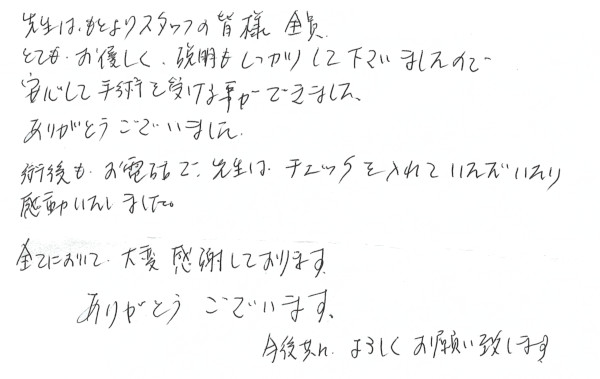 先生は、もとよりスタッフの皆様 全員
とても、お優しく、説明もしっかりして下さいましたので
安心して手術を受ける事ができました。
ありがとうございました。
術後も、お電話で、先生は、チェックを入れていただいたり
感動いたしました。
全てにおいて、大変 感謝しております。
ありがとう ございます。
今後共に、よろしく お願い致します